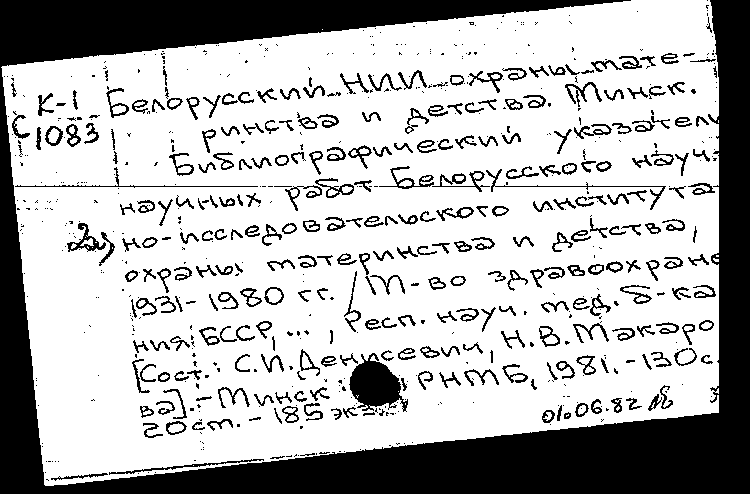 К-1 Белорусский НИИ охраны мате-
С 1083 ринства и детства. Минск.
Библиографический указатель
научных работ Белорусского науч-
но-исследовательского института
охраны материнства и детства,
1931-1980 гг. / М-во здравоохране
ния БССР, ... , Респ. науч. мед. б-ка
[Сост.: С.И. Денисевич, Н.В. Макаро
ва]. - Минск : РНМБ, 1981. - 130 с.
20 см. - 185 экз.
01.06.82